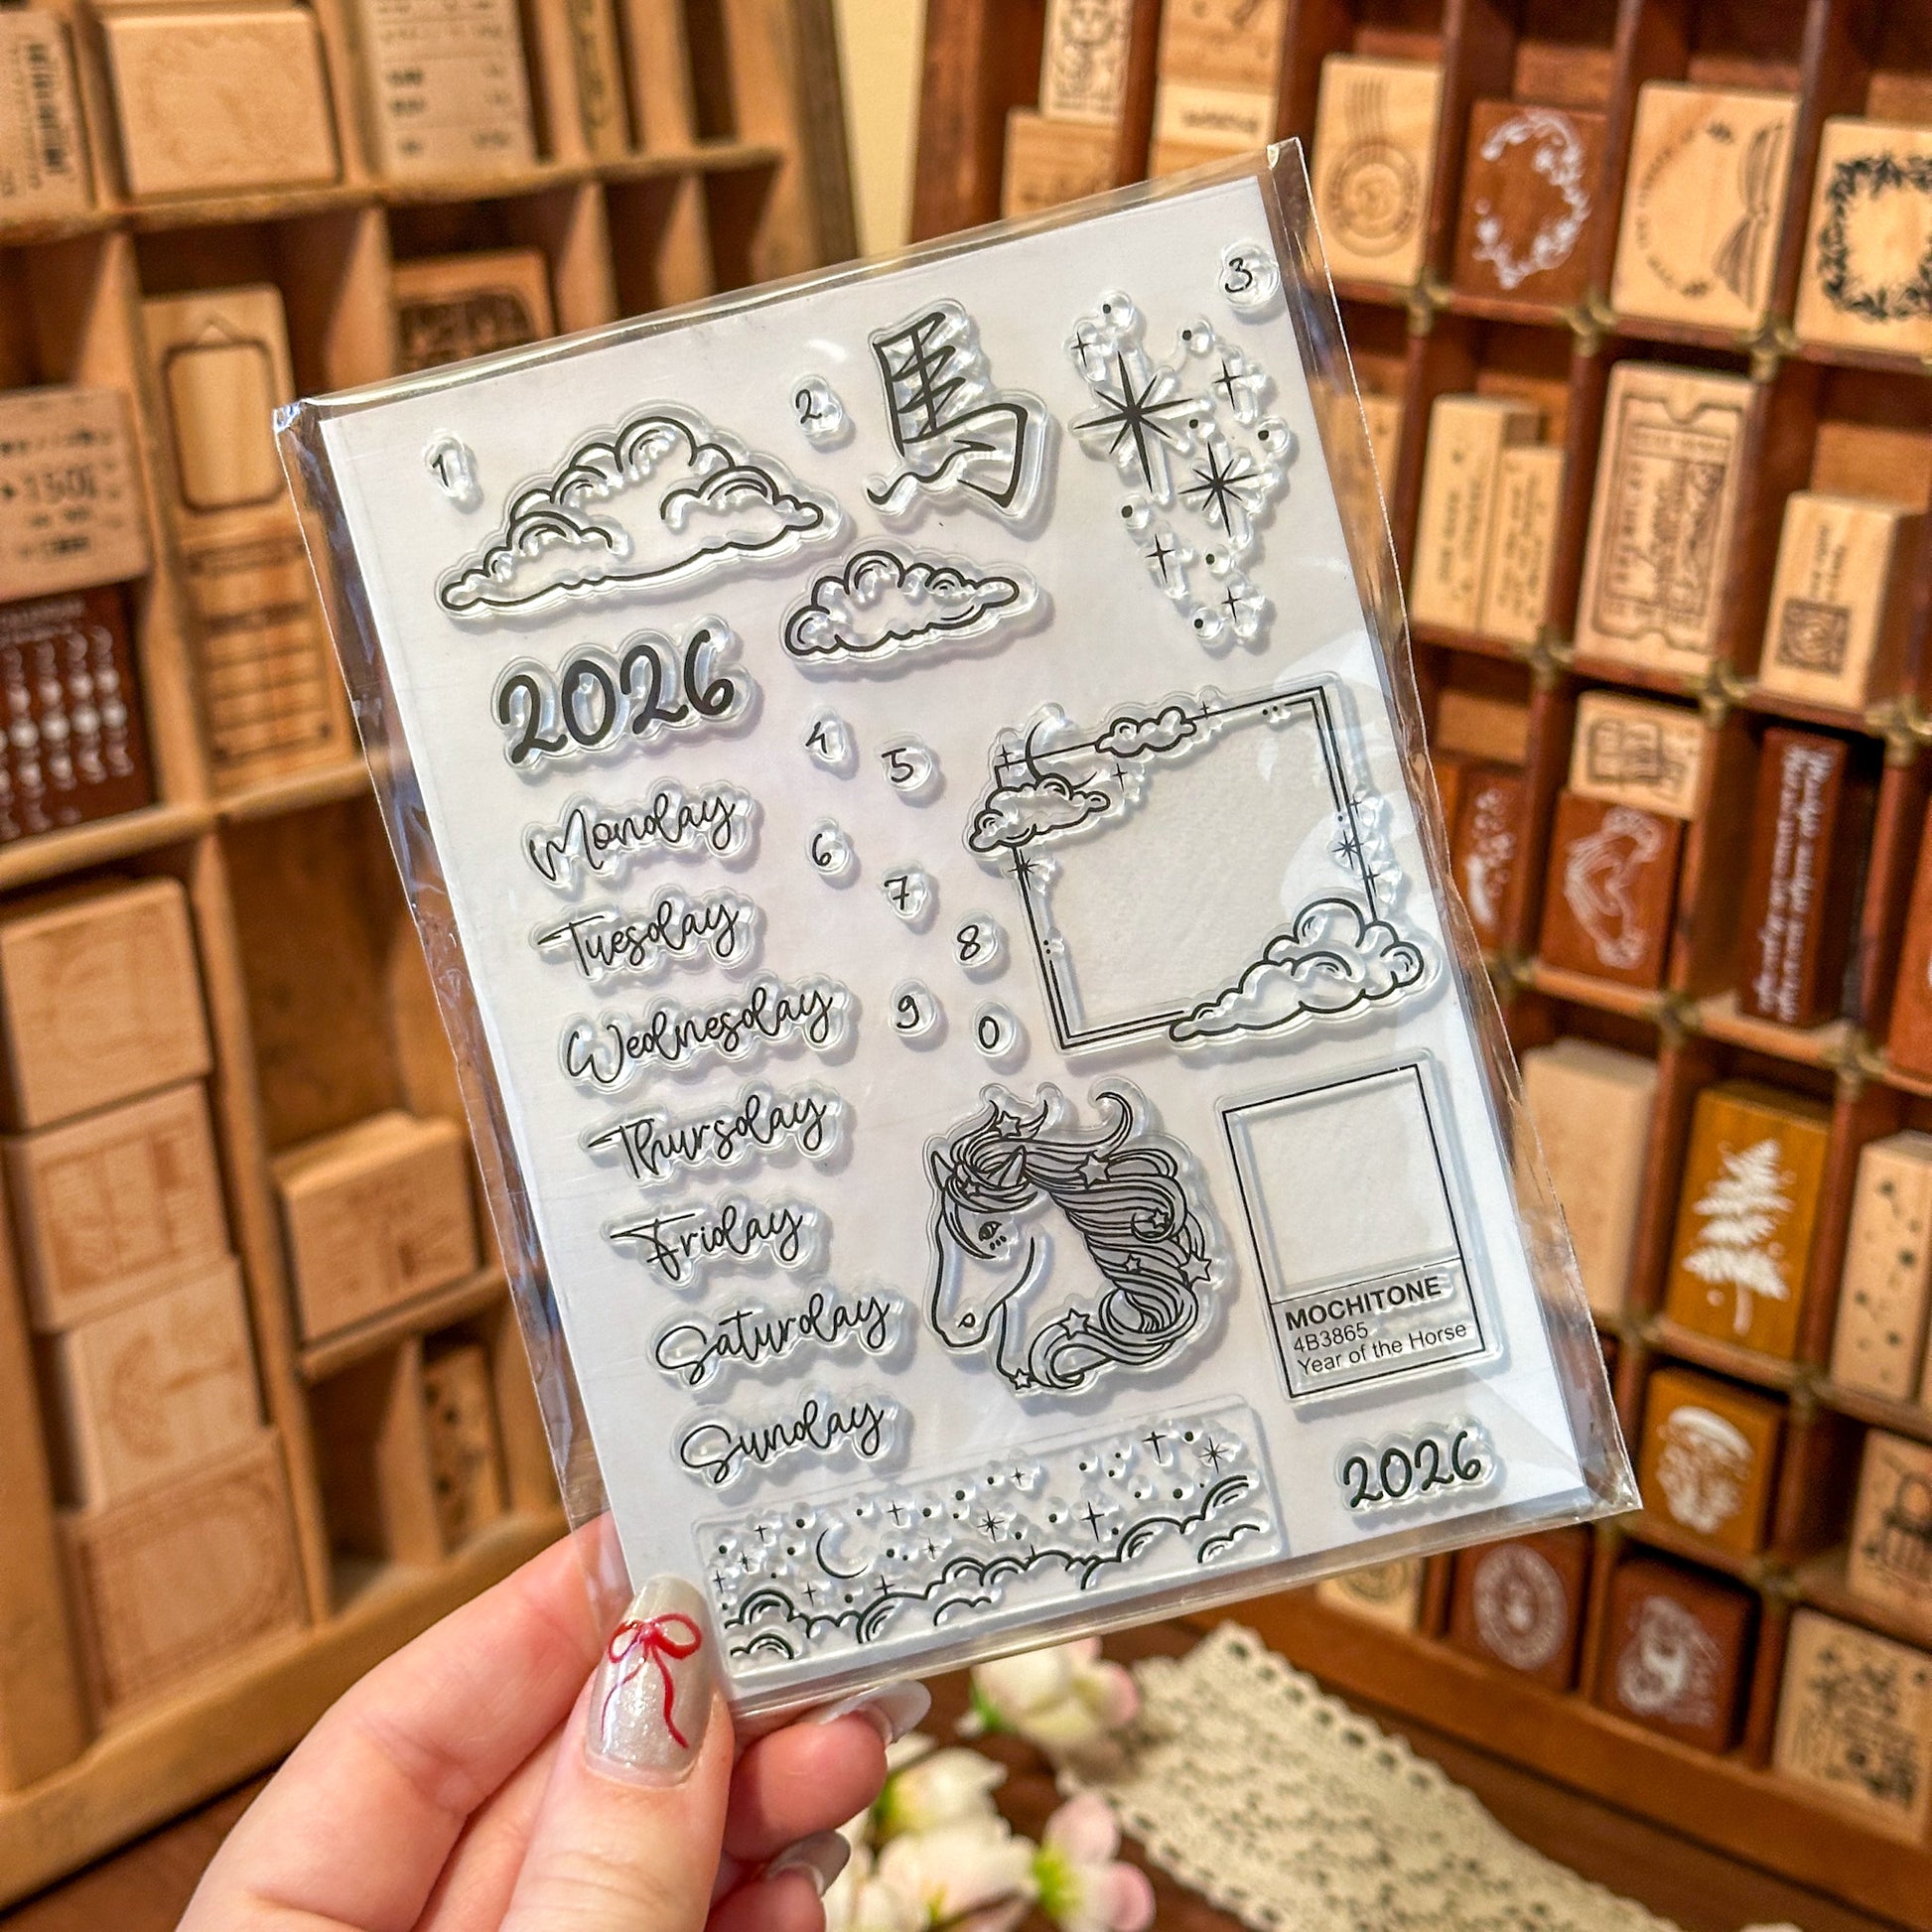 3
馬
2
1
2026
4
5
Monday
6
7
Tuesday
8
Wednesday
9
0
Thursday
Friday
Saturday
MOCHITONE
4B3865
Year of the Horse
Sunday
2026